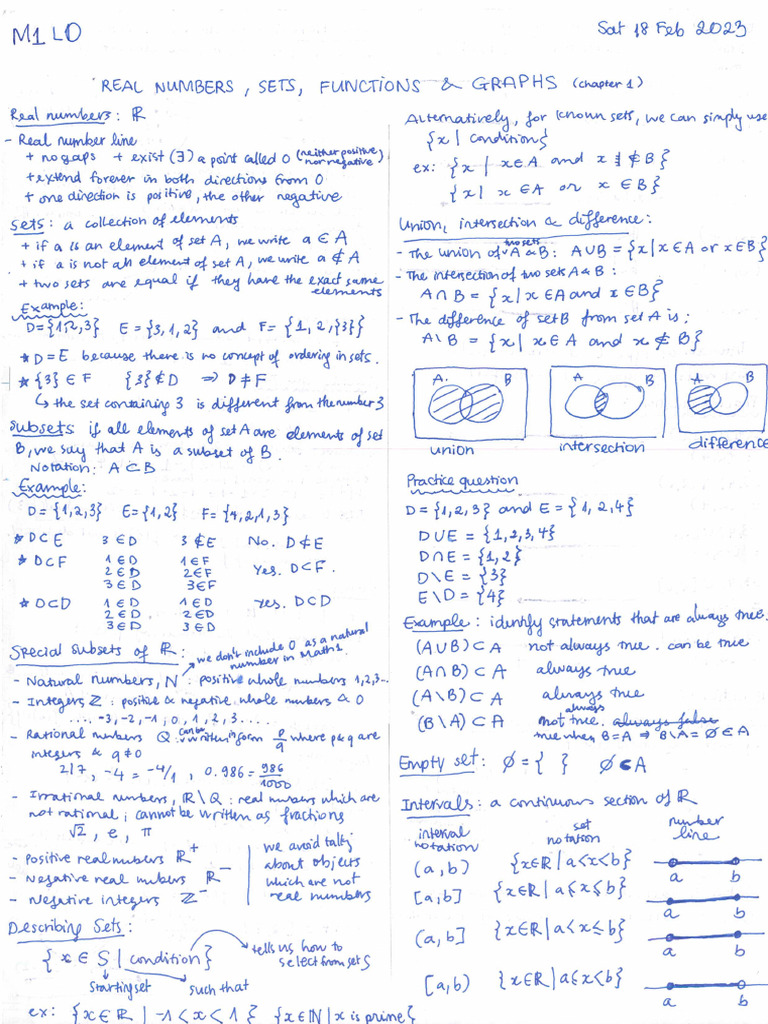 M1 LD
Sat 18 Feb 2023
REAL NUMBERS, SETS, FUNCTIONS & GRAPHS (chapter 1)
Real numbers: ℝ
- Real number line
+ no gaps + exist (∃) a point called 0 (neither positive nor negative)
+ extend forever in both directions from 0
+ one direction is positive, the other negative
Sets: a collection of elements
+ if a is an element of set A, we write a ∈ A
+ if a is not an element of set A, we write a ∉ A
+ two sets are equal if they have the exact same
elements
Example:
D={1,2,3} E={3,1,2} and F={1,2,{3}}
* D=E because there is no concept of ordering in sets.
* {3} ∈ F {3} ∉ D ⇒ D ≠ F
↳ the set containing 3 is different from the number 3
Subsets if all elements of set A are elements of set
B, we say that A is a subset of B.
Notation: A ⊂ B
Example:
D={1,2,3} E={1,2} F={4,2,1,3}
* D⊂E 3∈D 3∉E No. D⊄E
* D⊂F 1∈D 1∈F
2∈D 2∈F Yes. D⊂F.
3∈D 3∈F
* D⊂D 1∈D 1∈D Yes. D⊂D
2∈D 2∈D
3∈D 3∈D
Special subsets of ℝ:
we don't include 0 as a natural
number in Math1
- Natural numbers, N: positive whole numbers 1,2,3...
- Integers ℤ: positive & negative whole numbers & 0
.... -3,-2,-1,0,1,2,3....
- Rational numbers Q: can be written in form p/q where p & q are
integers & q≠0
2/7, -4 = -4/1, 0.986 = 986/1000
- Irrational numbers, ℝ\Q: real numbers which are
not rational; cannot be written as fractions
√2, e, π
- Positive real numbers ℝ⁺
- Negative real numbers ℝ⁻
- Negative integers ℤ⁻
we avoid talking
about objects
which are not
real numbers
Describing Sets:
{x ∈ S | condition}
tells us how to
select from set S
starting set such that
ex: {x∈ℝ | -1<x<1} {x∈ℕ | x is prime}
Alternatively, for known sets, we can simply use
{x | condition}
ex: {x | x∈A and x ∉ B}
{x | x∈A or x ∈ B}
Union, intersection & difference:
- The union of two sets A & B: A∪B = {x | x∈A or x∈B}
- The intersection of two sets A & B:
A∩B = {x | x∈A and x∈B}
- The difference of set B from set A is:
A\B = {x | x∈A and x∉B}
A B A B A B
union intersection difference
Practice question
D={1,2,3} and E={1,2,4}
D∪E = {1,2,3,4}
D∩E = {1,2}
D\E = {3}
E\D = {4}
Example: identify statements that are always true.
(A∪B)⊂A not always true. can be true
(A∩B)⊂A always true
(A\B)⊂A always true
(B\A)⊂A not always true. always false
true when B=A ⇒ B\A=∅∈A
Empty set: ∅={ } ∅⊂A
Intervals: a continuous section of ℝ
interval notation set notation number line
(a,b) {x∈ℝ | a<x<b} a b
[a,b] {x∈ℝ | a⩽x⩽b} a b
(a,b] {x∈ℝ | a<x⩽b} a b
[a,b) {x∈ℝ | a⩽x<b} a b